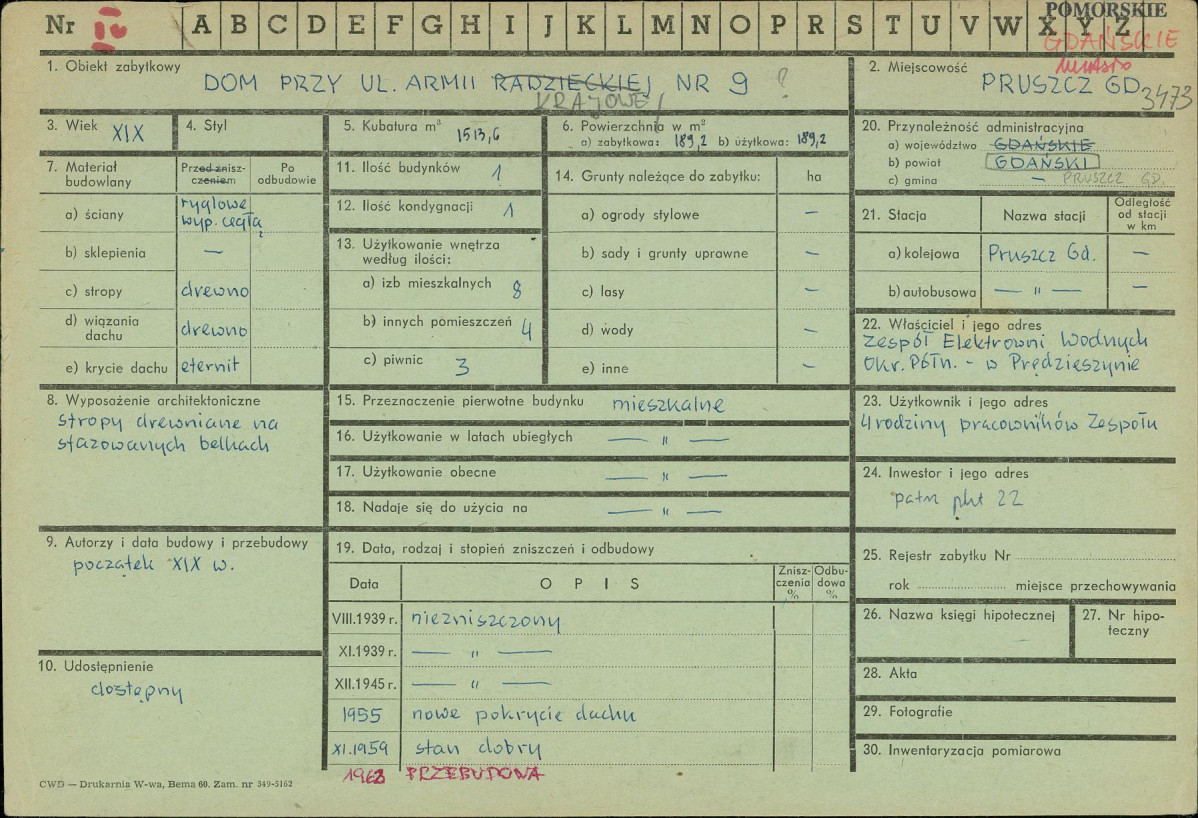 Nr IV A B C D E F G H I J K L M N O P R S T U V W X Y Z
POMORSKIE
GDAŃSKIE
miasto
1. Obiekt zabytkowy
DOM PRZY UL. ARMII RADZIECKIEJ NR 9 ?
KRAJOWEJ
2. Miejscowość
PRUSZCZ GD.
3473
3. Wiek XIX
4. Styl
5. Kubatura m³ 1513,6
6. Powierzchnia w m²
a) zabytkowa: 189,2 b) użytkowa: 189,2
20. Przynależność administracyjna
a) województwo GDAŃSKIE
b) powiat GDAŃSKI
c) gmina — PRUSZCZ GD.
7. Materiał budowlany
Przed znisz-
czeniem
Po
odbudowie
a) ściany ryglowe
wyp. cegłą
b) sklepienia —
c) stropy drewno
d) wiązania
dachu drewno
e) krycie dachu eternit
11. Ilość budynków 1
12. Ilość kondygnacji 1
13. Użytkowanie wnętrza
według ilości:
a) izb mieszkalnych 8
b) innych pomieszczeń 4
c) piwnic 3
14. Grunty należące do zabytku: ha
a) ogrody stylowe —
b) sady i grunty uprawne —
c) lasy —
d) wody —
e) inne —
21. Stacja
Nazwa stacji
Odległość
od stacji
w km
a) kolejowa Pruszcz Gd. —
b) autobusowa — " — —
22. Właściciel i jego adres
Zespół Elektrowni Wodnych
Okr. Półn. - w Prędzieszynie
8. Wyposażenie architektoniczne
stropy drewniane na
sfazowanych belkach
15. Przeznaczenie pierwotne budynku mieszkalne
16. Użytkowanie w latach ubiegłych — " —
17. Użytkowanie obecne — " —
18. Nadaje się do użycia na — " —
23. Użytkownik i jego adres
4 rodziny pracowników Zespołu
24. Inwestor i jego adres
patrz pkt 22
9. Autorzy i data budowy i przebudowy
początek XIX w.
10. Udostępnienie
dostępny
19. Data, rodzaj i stopień zniszczeń i odbudowy
Data
OPIS
Znisz-
czenia
%
Odbu-
dowa
%
VIII.1939 r. niezniszczony
XI.1939 r. — " —
XII.1945 r. — " —
1955 nowe pokrycie dachu
XI.1959 stan dobry
1968 PRZEBUDOWA
25. Rejestr zabytku Nr
rok miejsce przechowywania
26. Nazwa księgi hipotecznej
27. Nr hipo-
teczny
28. Akta
29. Fotografie
30. Inwentaryzacja pomiarowa
CWD — Drukarnia W-wa, Bema 60. Zam. nr 349-5162